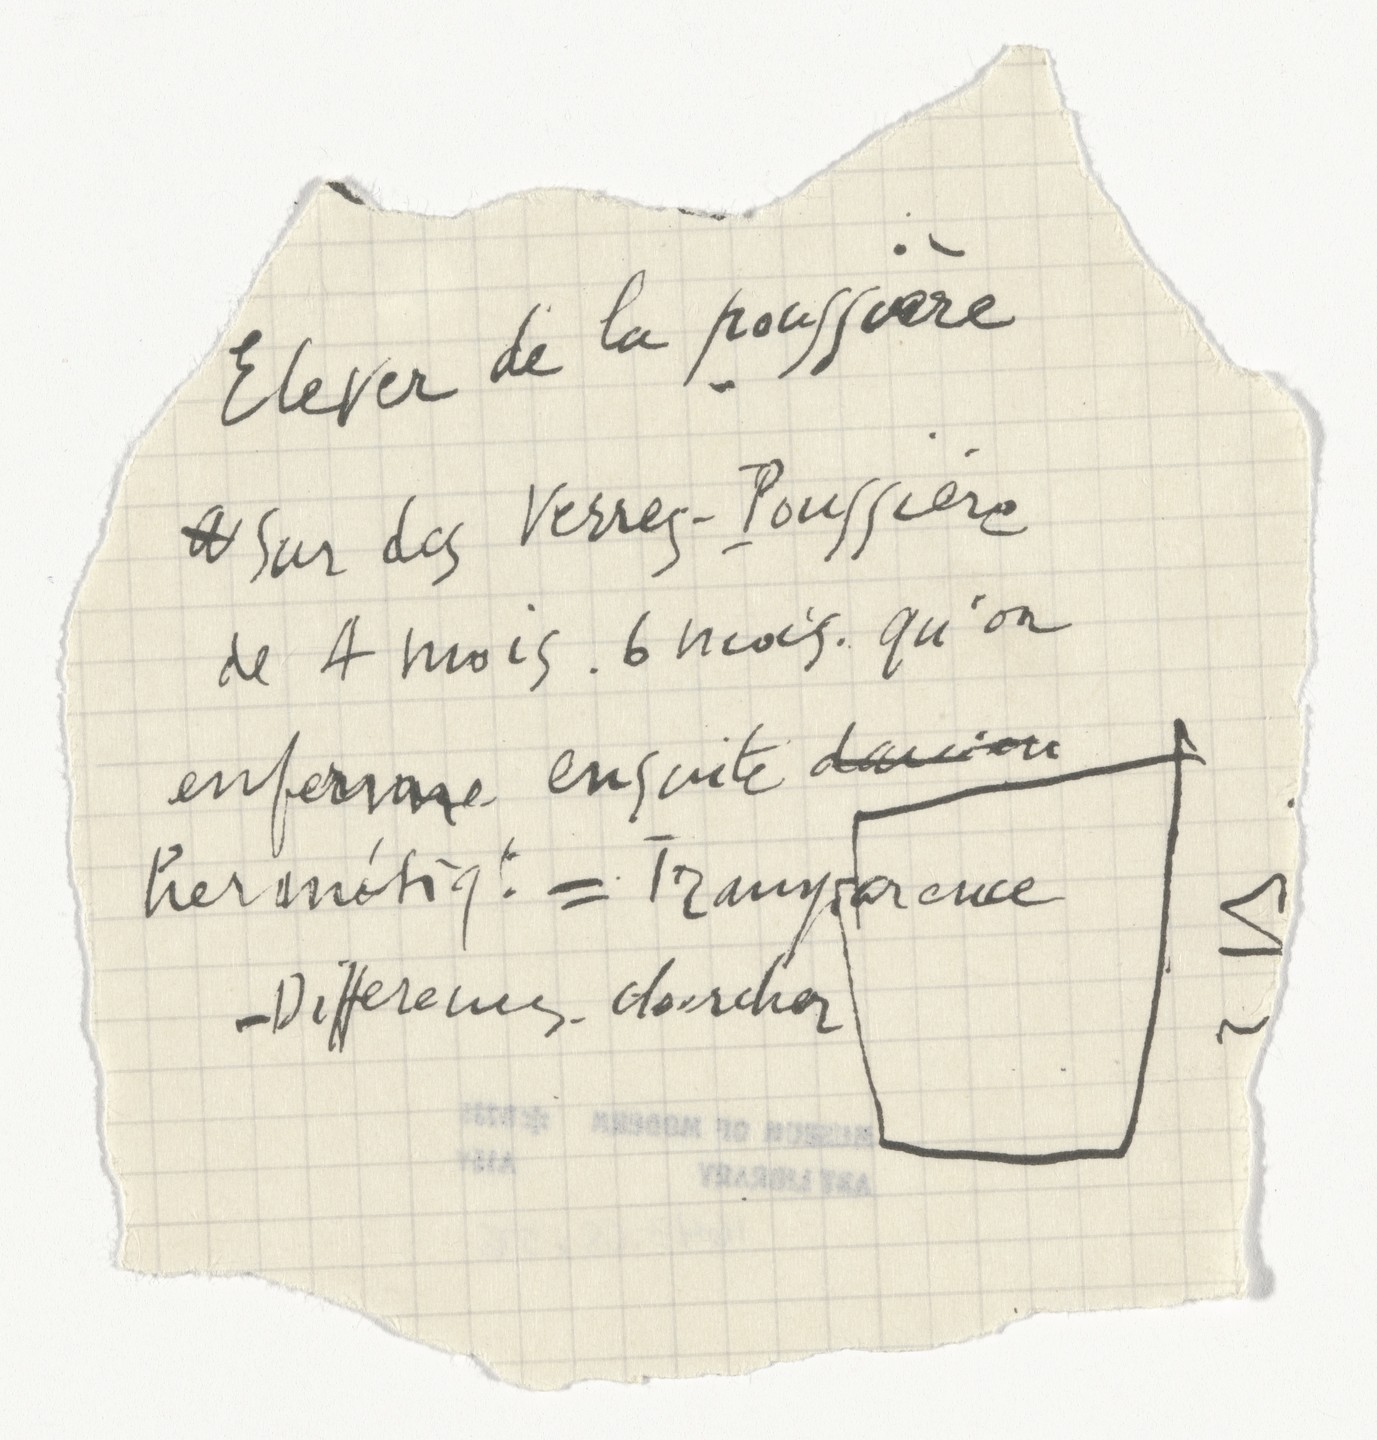 Elever de la poussière
Sur des Verres - Poussière
de 4 mois. 6 mois. qu'on
enferme ensuite
hermétiqt. = Transparence
- Differences. chercher
MUSEUM OF MODERN
ART LIBRARY